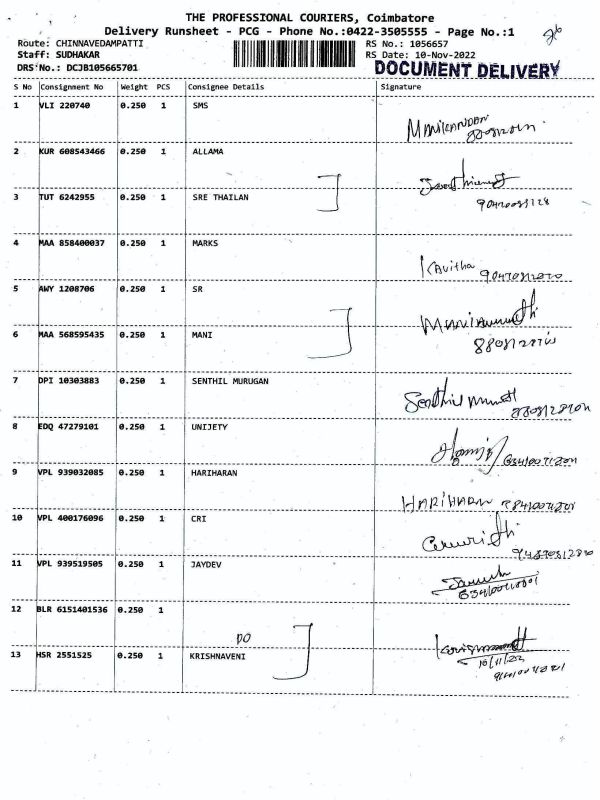 THE PROFESSIONAL COURIERS, Coimbatore
Delivery Runsheet - PCG - Phone No.:0422-3505555 - Page No.:1
26
Route: CHINNAVEDAMPATTI
RS No.: 1056657
Staff: SUDHAKAR
RS Date: 10-Nov-2022
DRS No.: DCJB105665701
DOCUMENT DELIVERY
S No Consignment No Weight PCS Consignee Details Signature
1 VLI 220740 0.250 1 SMS
MANIKANDAN
2 KUR 608543466 0.250 1 ALLAMA
3 TUT 6242955 0.250 1 SRE THAILAN
4 MAA 858400037 0.250 1 MARKS
Kavitha
5 AWY 1208706 0.250 1 SR
6 MAA 568595435 0.250 1 MANI
7 DPI 10303883 0.250 1 SENTHIL MURUGAN
Senthil
8 EDQ 47279101 0.250 1 UNIJETY
9 VPL 939032085 0.250 1 HARIHARAN
HARIHARAN
10 VPL 400176096 0.250 1 CRI
11 VPL 939519505 0.250 1 JAYDEV
12 BLR 6151401536 0.250 1
DO
13 HSR 2551525 0.250 1 KRISHNAVENI